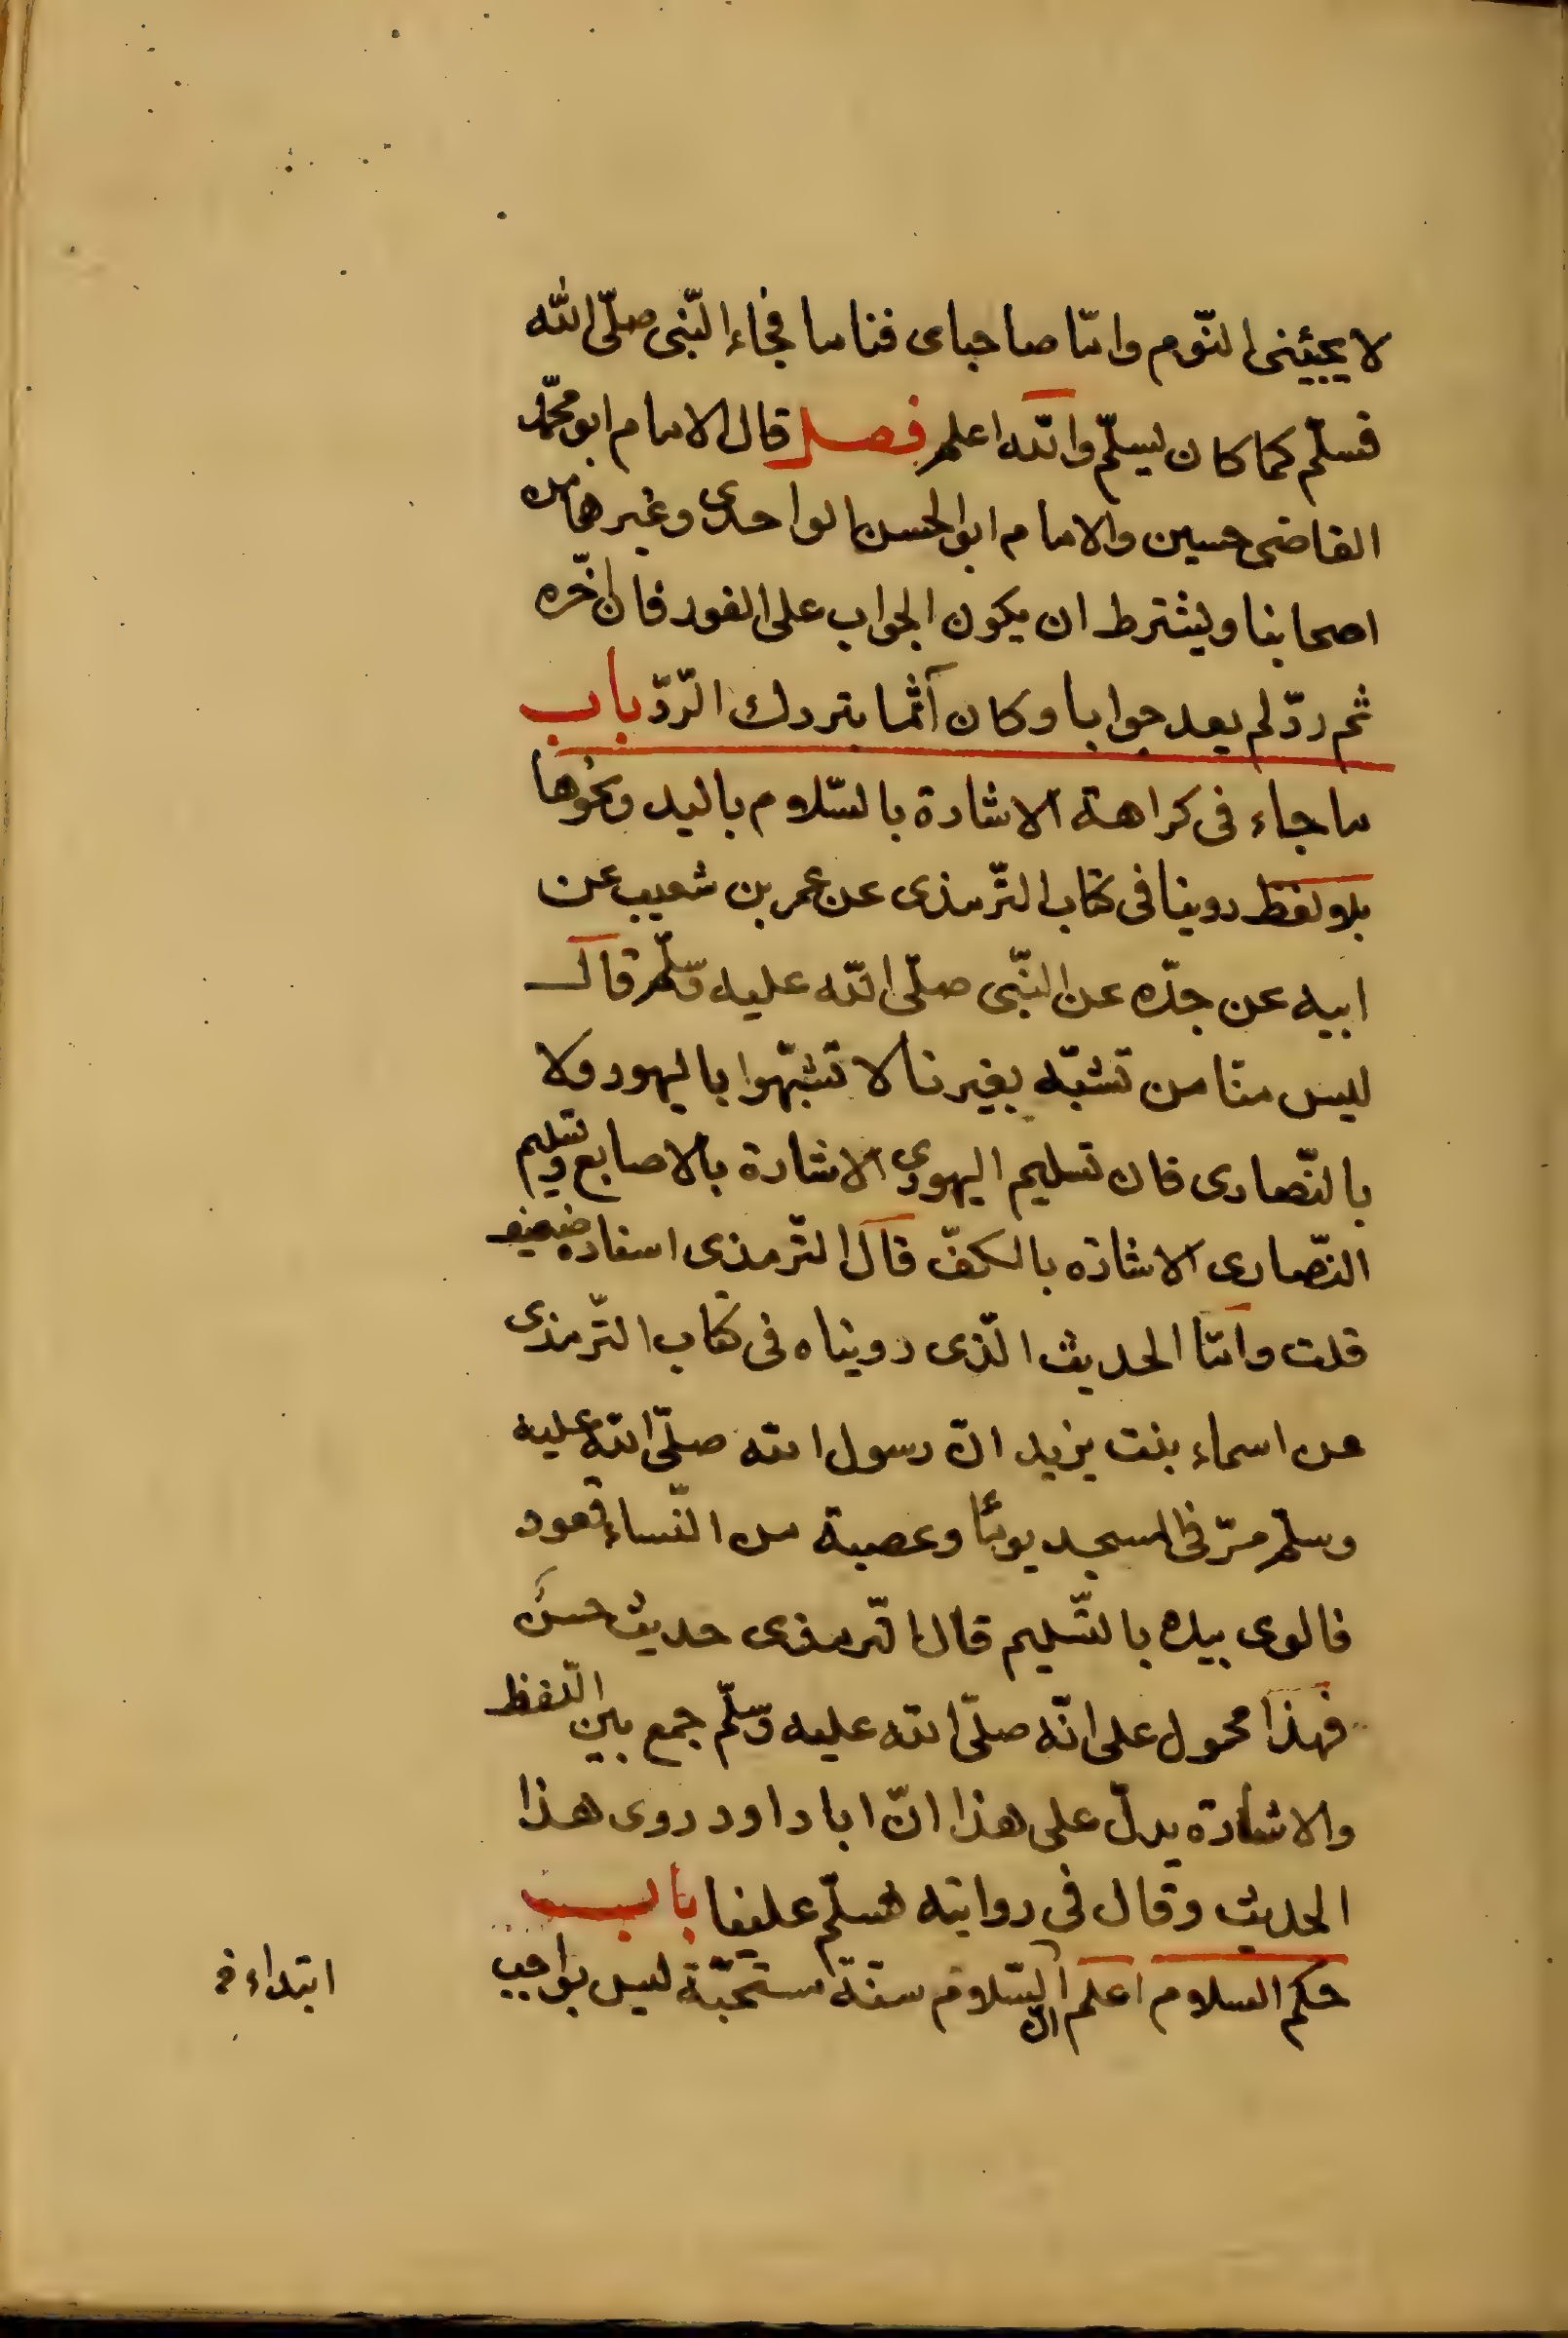 لا يجيئنى النّوم وامّا صاحباى فناما فجاء النّبى صلّى الله
فسلّم كما كان يسلّم والله اعلم فصل قال الامام ابو محمّد
القاضى حسين والامام ابو الحسن الواحدى وغيرهما من
اصحابنا ويشترط ان يكون الجواب على الفور فان اخّره
ثم ردّ لم يعد جوابا وكان آثما بترك الرّدّ باب
ما جاء فى كراهة الاشارة بالسّلام باليد ونحوها
بلا لفظ روينا فى كتاب التّرمذى عن عمر بن شعيب عن
ابيه عن جدّه عن النّبى صلّى الله عليه وسلّم قال
ليس منّا من تشبّه بغيرنا لا تشبّهوا باليهود ولا
بالنّصارى فان تسليم اليهودى الاشارة بالاصابع وتسليم
النّصارى الاشارة بالكفّ قال التّرمذى اسناده ضعيف
قلت وامّا الحديث الّذى رويناه فى كتاب التّرمذى
عن اسماء بنت يزيد انّ رسول الله صلّى الله عليه
وسلّم مرّ فى المسجد يومًا وعصبة من النّساء قعود
فالوى بيده بالتّسليم قال التّرمذى حديث حسن
فهذا محمول على انّه صلّى الله عليه وسلّم جمع بين اللّفظ
والاشارة يدلّ على هذا انّ ابا داود روى هذا
الحديث وقال فى روايته فسلّم علينا باب
حكم السلام اعلم انّ السّلام سنّة مستحبّة ليس بواجب
ابتداءه